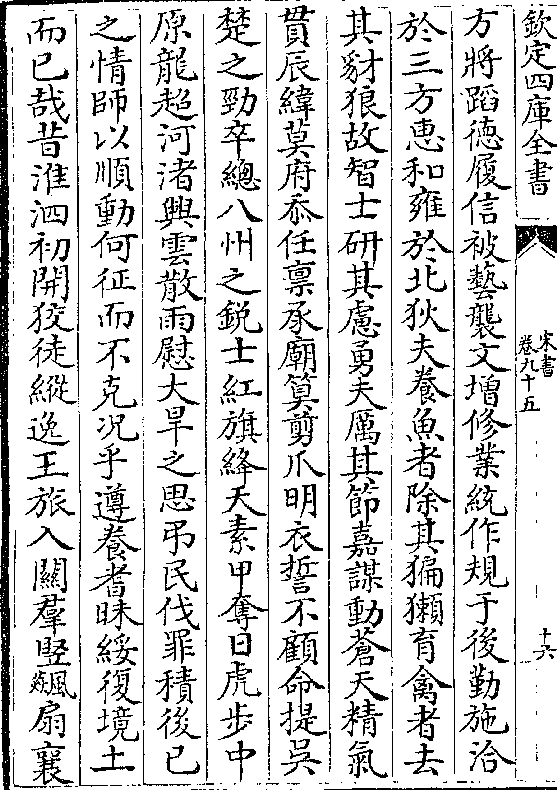 欽定四庫全書
宋書
卷九十五
十六
方將蹈徳履信被藝襲文增修業統作規于後勤施洽
於三方恵和雍於北狄夫養魚者除其猵獺育禽者去
其豺狼故智士研其慮勇夫厲其節嘉謀動蒼天精氣
貫辰緯莫府忝任禀承廟算剪爪明衣誓不顧命提吳
楚之勁卒總八州之鋭士紅旗絳天素甲奪日虎步中
原龍超河渚興雲散雨慰大旱之思弔民伐罪積後已
之情師以順動何征而不克况乎遵養耆昧綏復境土
而已哉昔淮泗初開狡徒縱逸王旅入關羣竪飈扇襄